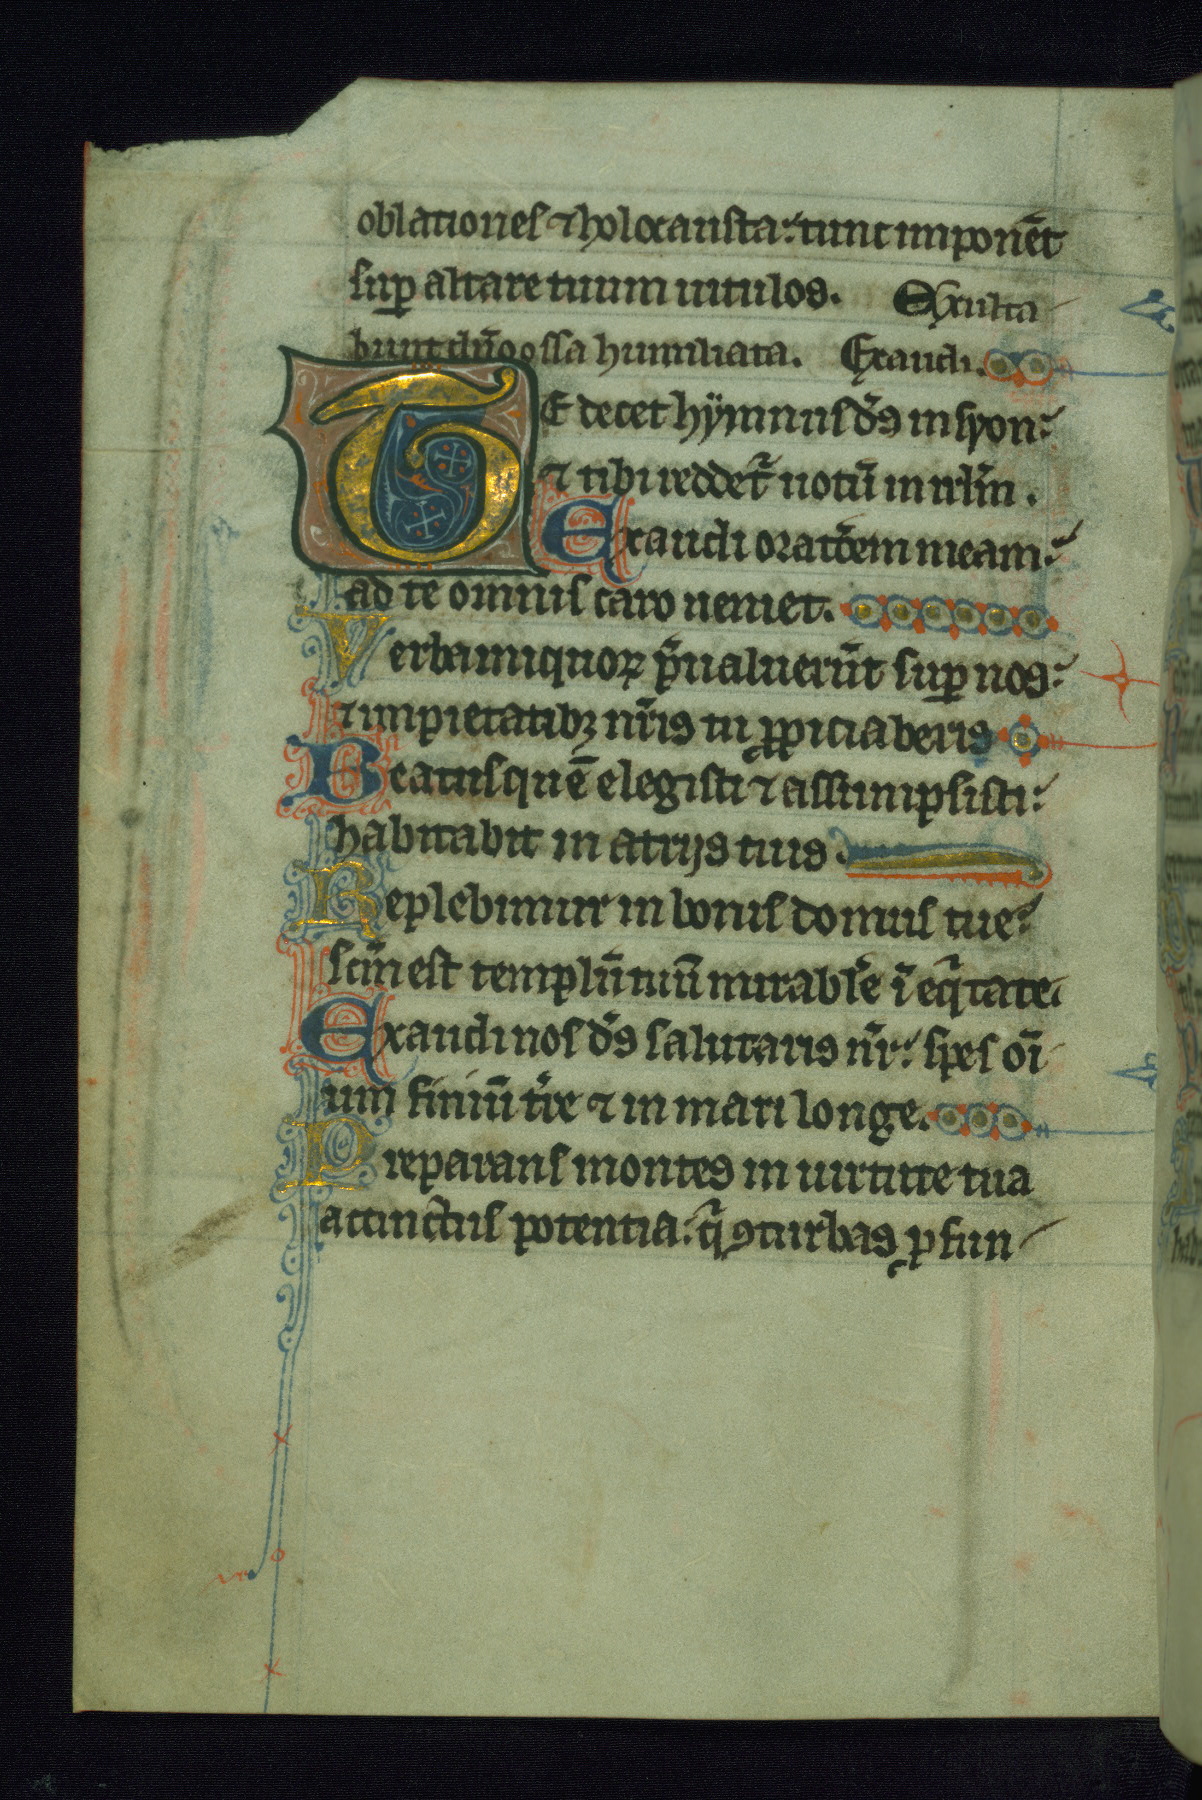 oblationes ⁊ holocausta: tunc imponẽt
suꝑ altare tuum uitulos. Exulta
bunt dño ossa humiliata. Exaudi.
TE decet hÿmnus d̃s in syon:
⁊ tibi reddet᷑ uotũ in irl̃m.
Exaudi orat̃oem meam:
ad te omnis caro ueniet.
Verba iniquoꝝ p̃ualuerũt suꝑ nos:
⁊ impietatibꝫ nr̃is tu ꝓpiciaberis
Beatus quẽ elegisti ⁊ assumpsisti:
habitabit in atrijs tuis.
Replebimur in bonis domus tue:
sc̃m est templũ tuũ mirabl̃e ĩ eq̃tate.
Exaudi nos d̃s salutaris nr̃: spes oĩ
um finiũ tr̃e ⁊ in mari longe.
Preparans montes in uirtute tua
accinctus potentia: q̃ ꝯturbas ꝓfun